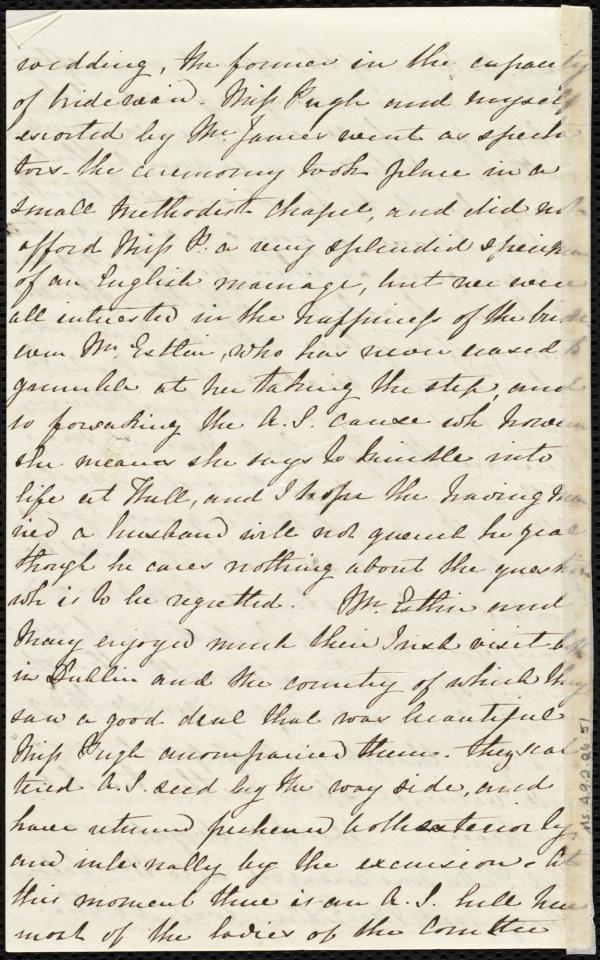 wedding, the former in the capacity
of bridesmaid. Miss Pugh and myself
escorted by Mr. James went as specta
tors - the ceremony took place in a
small Methodist Chapel, and did not
afford Miss P. a very splendid specimen
of an English marriage, but we were
all interested in the happiness of the bride
even Mr. Estlin, who has never ceased to
grumble at her taking the step, and
so forsaking the A.S. cause wh however
she means she says to kindle into
life at Hull, and I hope the having mar
ried a husband will not quench her zeal
though he cares nothing about the question
wh is to be regretted. Mr. Estlin and
Mary enjoyed much their Irish visit both
in Dublin and the country of which they
saw a good deal that was beautiful
Miss Pugh accompanied them. They scat
tered A.S. seed by the way side, and
have returned freshened both exteriorly
and internally by the excursion. At
this moment there is an A.S. here
most of the ladies of the Comttee
Ms.A.9.2.26.51